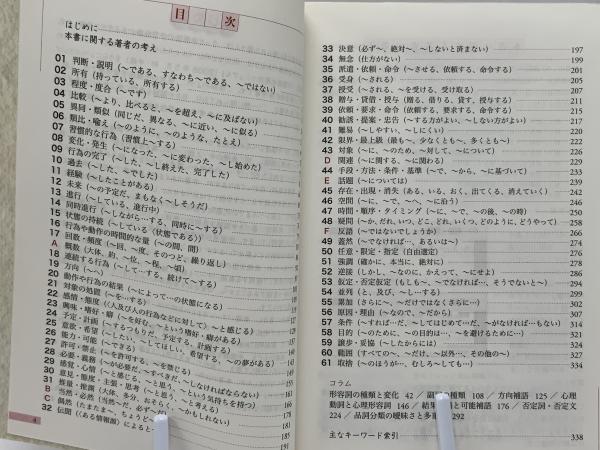 目次
はじめに
本書に関する著者の考え
01 判断・説明(〜である、すなわち〜である、〜ではない)
02 所有(持っている、所有する)
03 程度・度合(〜です)
04 比較(〜より、比べると、〜を超え、〜に及ばない)
05 異同・類似(同じだ、異なる、〜に近い、〜に似る)
06 類比・喩え(〜のように、〜のような、たとえ)
07 習慣的な行為(習慣上〜する)
08 変化・発生(〜になった、〜に変わった、〜し始めた)
09 行為の完了(〜した、〜し終えた、完了した)
10 過去(〜した、〜でした)
11 経験(〜したことがある)
12 未来(〜の予定だ、まもなく〜しそうだ)
13 進行(〜している、進行中)
14 同時進行(〜しながら…する、同時に〜する)
15 状態の持続(〜している〈状態である〉)
16 行為や動作の時間的な量(〜の間、間)
17 回数・頻度(〜回、〜度、そのつど、繰り返し)
A 概数(大体、約、〜位、〜ころ、〜頃)
18 連続する行為(〜して…する、続けて〜する)
19 方向(〜へ)
20 動作や行為の結果(〜によって…の状態になる)
21 対象の処置(〜を…する)
22 感情・態度(〈人及び人の行為などに対して〉〜と感じる)
23 興味・嗜好・癖(〜を好む、〜という嗜好・癖がある)
24 予定・計画(〜するつもりだ、予定する、計画する)
25 意欲・希望(〜したい、〜してほしい、希望する、〜の夢がある)
26 能力・可能(〜できる)
27 許可・禁止(〜を許可する、〜を禁じる)
28 必要・義務(〜が必要だ、〜すべきだ、〜しなければならない)
29 感覚・心情(〜と感じる、〜と思う、〜という気持ちを持つ)
30 意見・態度・主張・思考(〜と思う、〜と考える)
31 推量・推測(大体、多分、おそらく、〜かもしれない)
B 当然・必然(当然〜だ、必ず〜だ)
C 偶然(たまたま〜、ちょうど〜
32 伝聞(〈ある情報源〉によると
181
185
191
4
33 決意(必ず〜、絶対〜、〜しないと済まない) 197
34 無念(仕方がない) 199
35 派遣・依頼・命令(〜させる、依頼する、命令する) 201
36 受身(〜される) 205
37 授受(〜される、〜を受ける、受け取る) 207
38 贈与・貸借・授与(贈る、借りる、貸す、授与する) 209
39 依頼・要求・命令(依頼する、要求する、命令する) 211
40 勧誘・提案・忠告(〜する方がよい、〜しない方がよい) 215
41 難易(〜しやすい、〜しにくい) 218
42 限界・最上級(最も〜、少なくとも〜、多くとも〜) 220
43 対象(〜に、〜のため、〜対して、〜について) 225
D 関連(〜に関する、〜に関わる) 229
44 手段・方法・条件・基準(〜で、〜から、〜に基づいて) 231
E 話題(〜については) 237
45 存在・出現・消失(ある、いる、おく、出てくる、消えていく) 239
46 空間(〜に、〜で、〜へ、〜に沿う) 243
47 時間・順序・タイミング(〜に、〜で、〜の後、〜の時) 250
48 疑問(〜か、だれ、いつ、どこ、どれ、いくつ、どのように、どうやって) 258
F 反語(〜ではないでしょうか) 266
49 蓋然(〜でなければ…、あるいは〜) 268
50 任意・限定・指定(自由選定) 271
51 強調(確かに、本当に、絶対に) 276
52 逆接(しかし、〜なのに、かえって、〜にせよ) 281
53 仮定・否定仮定(もしも、〜でなければ…、そうでないと〜) 288
54 並列(と、及び、〜し…する) 293
55 累加(さらに〜、〜だけではなくさらに…) 301
56 原因・理由(〜なので、〜だから) 307
57 条件(〜すれば…だ、〜してはじめて…だ、〜がなければ…もない) 314
58 目的(〜のために、〜の目的は…、〜を避けるために…) 321
59 譲歩・妥協(〜したからには) 324
60 範囲(すべての〜、〜だけ、〜以外…、その他の〜) 327
61 取捨(〜のほうが…、むしろ〜しても) 331
コラム
形容詞の種類と変化 42 / 副詞の種類 108 / 方向補語 125 / 心理
動詞と心理形容詞 146 / 結果補語と可能補語 176 / 否定詞・否定文
224 / 品詞分類の曖昧さと多重 292
主なキーワード索引 338